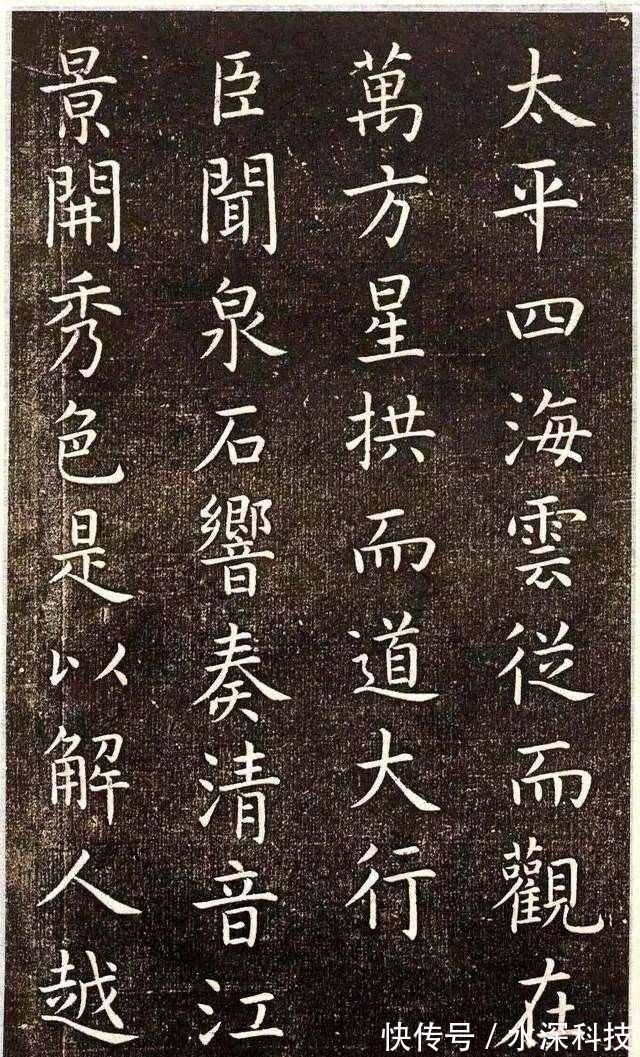 太平四海雲從而觀在
萬方星拱而道大行
臣聞泉石響奏清音江
景開秀色是以解人越
快传号/水深科技